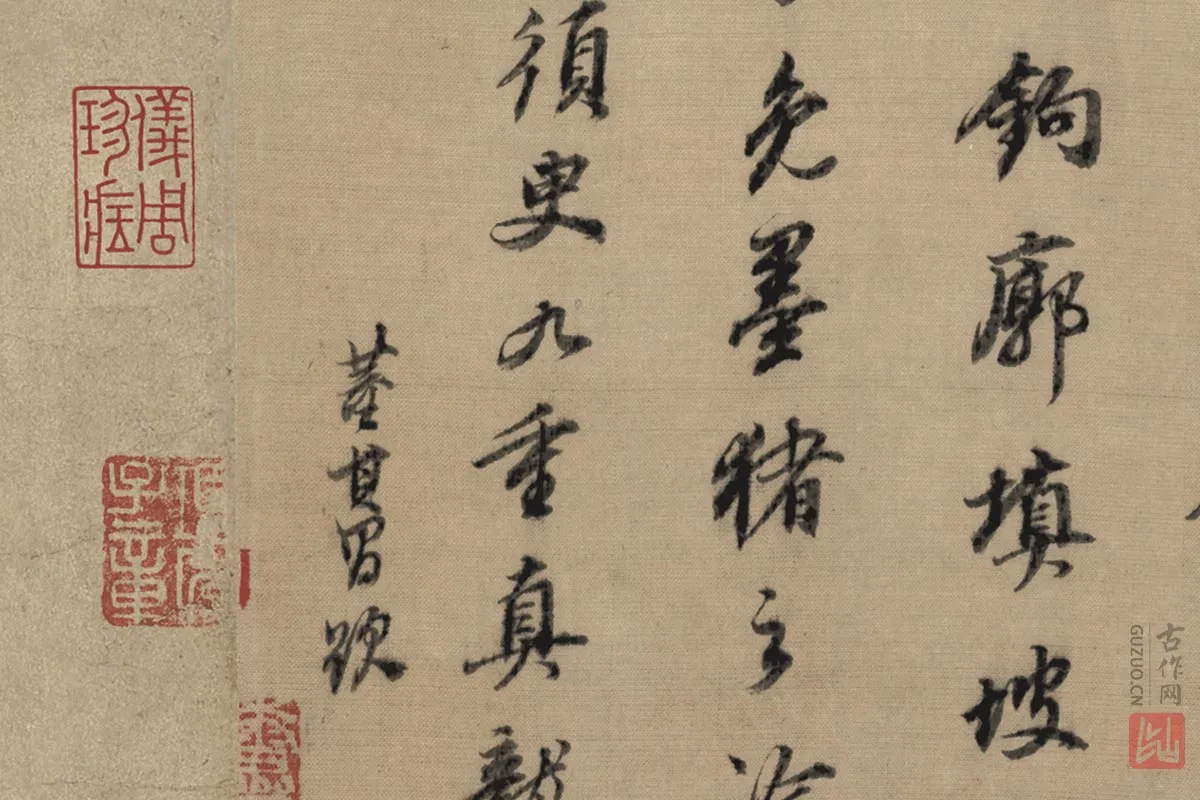 鉤廓填坡
免墨猪之
須臾九重真龍
董其昌跋
儀周珍藏
古作网
GUZUO.CN